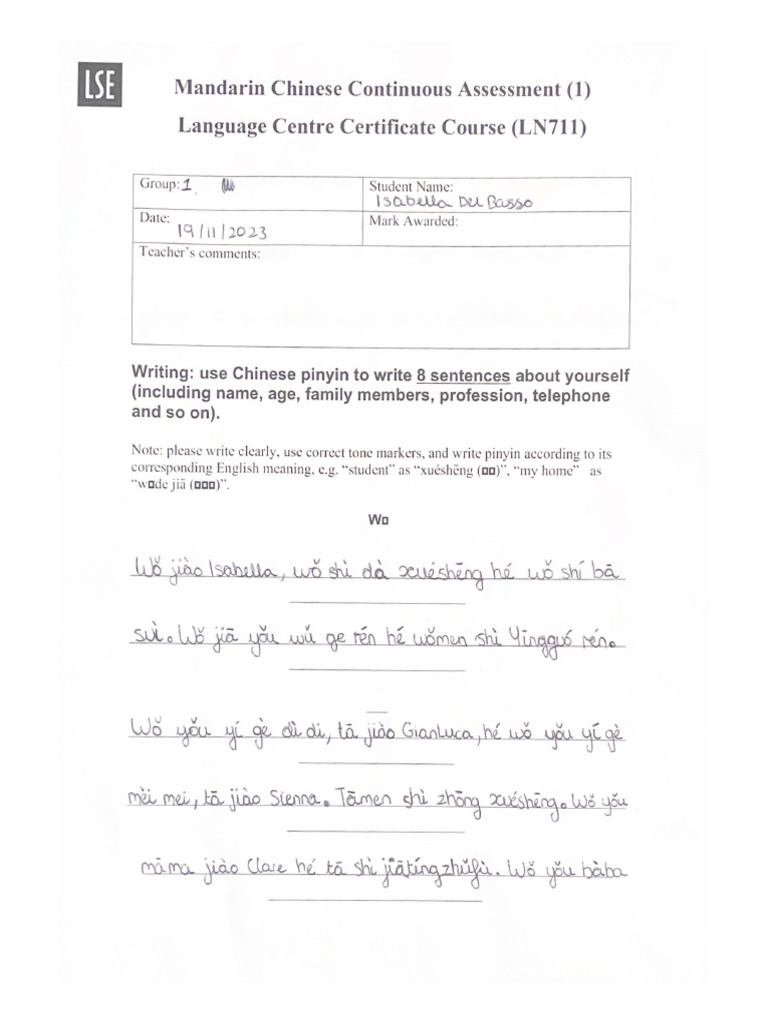 LSE
Mandarin Chinese Continuous Assessment (1)
Language Centre Certificate Course (LN711)
Group: 1
Student Name:
Isabella Del Basso
Date:
19/11/2023
Mark Awarded:
Teacher's comments:
Writing: use Chinese pinyin to write 8 sentences about yourself
(including name, age, family members, profession, telephone
and so on).
Note: please write clearly, use correct tone markers, and write pinyin according to its
corresponding English meaning, e.g. “student” as “xuéshēng (▯▯)”, “my home” as
“w▯de jiā (▯▯▯)”.
W▯
Wǒ jiào Isabella, wǒ shì dà xuéshēng hé wǒ shí bā
suì. Wǒ jiā yǒu wǔ ge rén hé wǒmen shì Yīngguó rén.
Wǒ yǒu yí gè dì di, tā jiào Gianluca, hé wǒ yǒu yí gè
mèi mei, tā jiào Sienna. Tāmen shì zhōng xuéshēng. Wǒ yǒu
māma jiào Clare hé tā shì jiātíngzhǔfù. Wǒ yǒu bàba